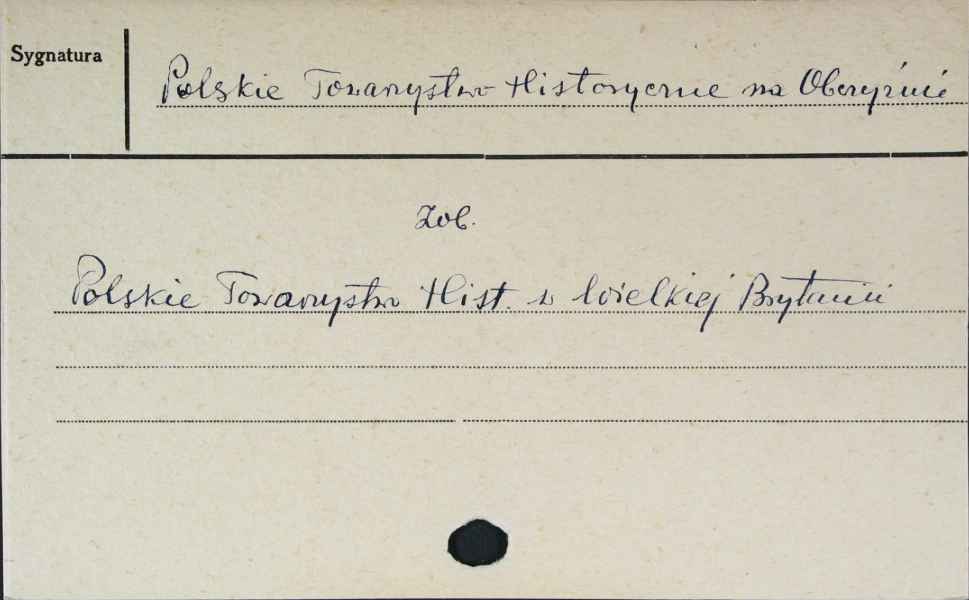 Sygnatura
Polskie Towarzystwo Historyczne na Obczyźnie
Zob.
Polskie Towarzystwo Hist. w Wielkiej Brytanii